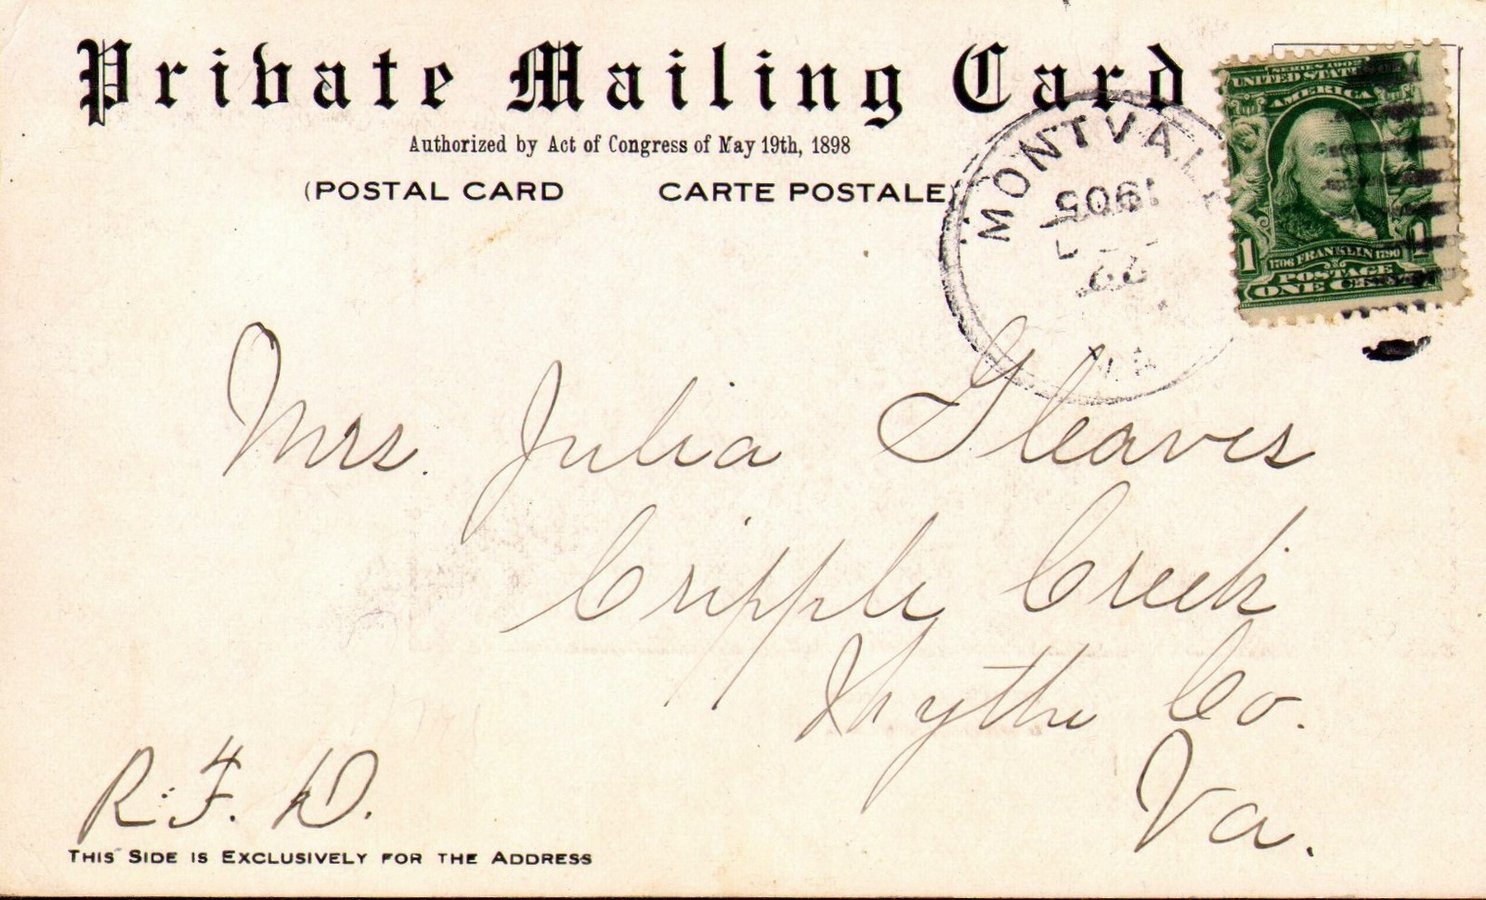 Private Mailing Card
Authorized by Act of Congress of May 19th, 1898
(POSTAL CARD CARTE POSTALE)
MONTVALE
1905
VA
SERIES 1902
UNITED STATES
AMERICA
1706 FRANKLIN 1790
1 1
POSTAGE
ONE CENT
Mrs. Julia Gleaves
Cripple Creek
Wythe Co.
Va.
R.F.D.
THIS SIDE IS EXCLUSIVELY FOR THE ADDRESS